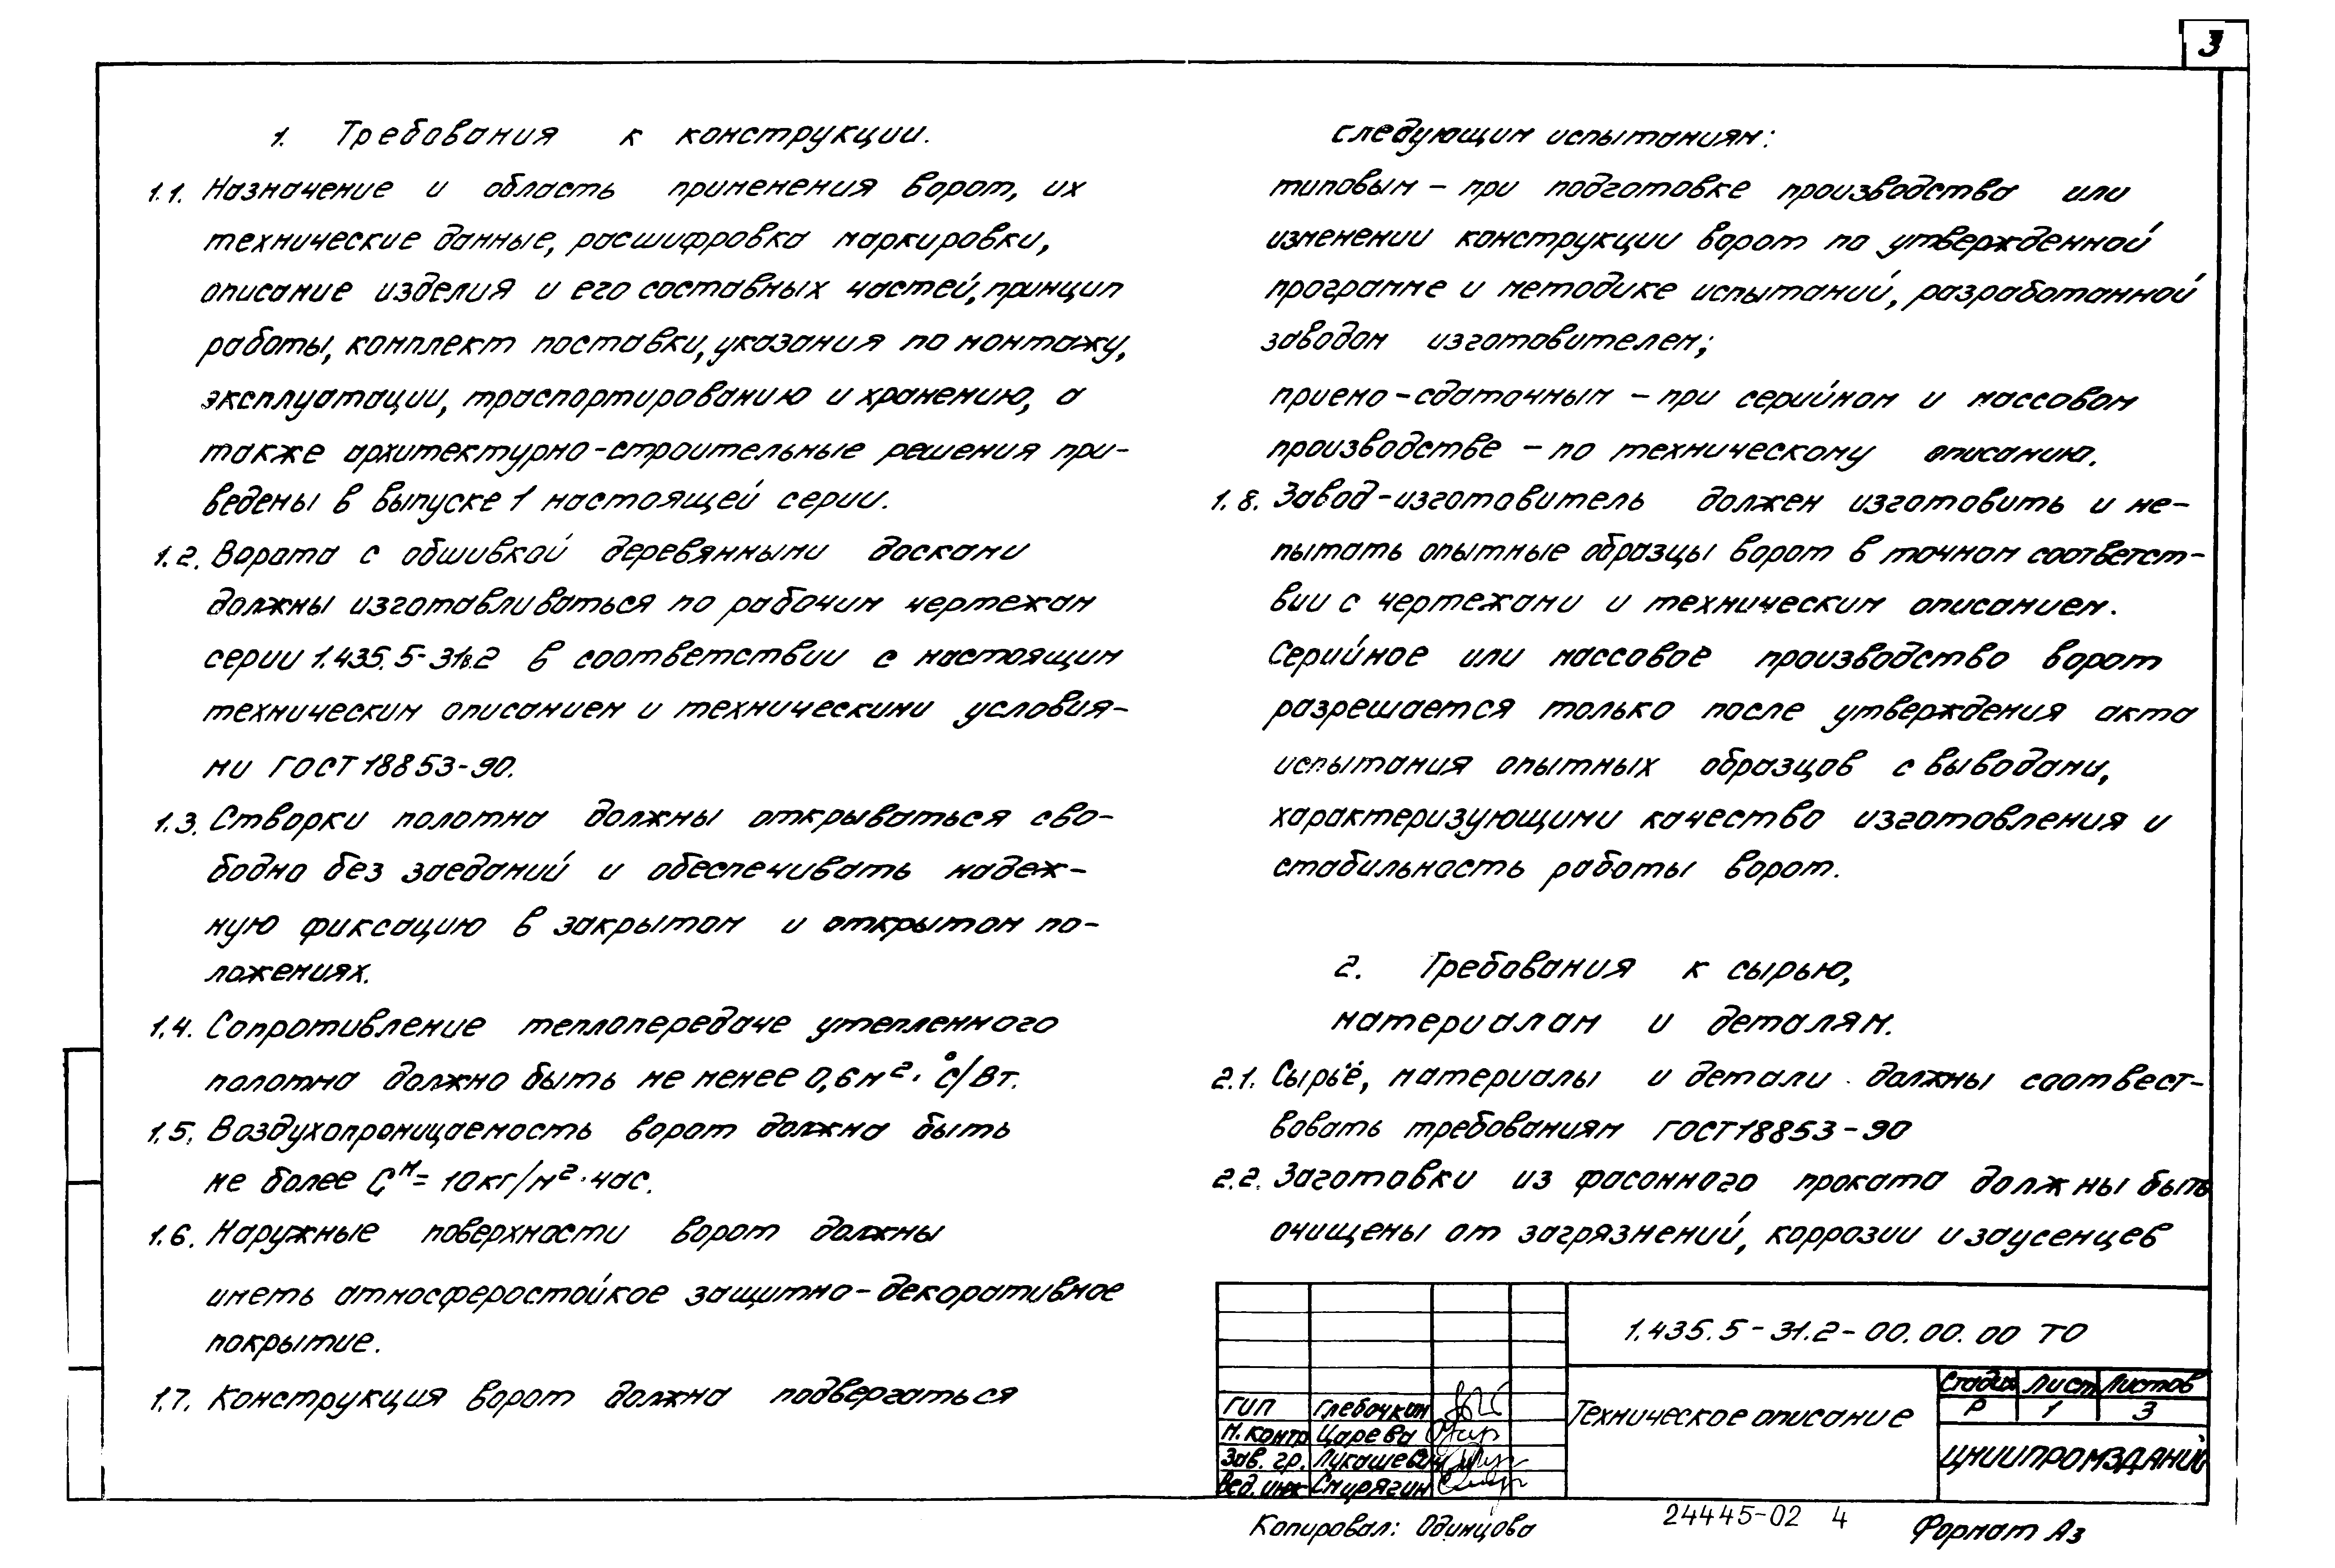 3
1. Требования к конструкции.
1.1. Назначение и область применения ворот, их
технические данные, расшифровка маркировки,
описание изделия и его составных частей, принцип
работы, комплект поставки, указания по монтажу,
эксплуатации, траспортированию и хранению, а
также архитектурно-строительные решения при-
ведены в выпуске 1 настоящей серии.
1.2. Ворота с обшивкой деревянными досками
должны изготавливаться по рабочим чертежам
серии 1.435.5-31в.2 в соответствии с настоящим
техническим описанием и техническими условия-
ми ГОСТ 18853-90.
1.3. Створки полотна должны открываться сво-
бодно без заеданий и обеспечивать надеж-
ную фиксацию в закрытом и открытом по-
ложениях.
1.4. Сопротивление теплопередаче утепленного
полотна должно быть не менее 0,6 м²·°С/Вт.
1.5. Воздухопроницаемость ворот должна быть
не более Gᴴ= 10 кг/м²·час.
1.6. Наружные поверхности ворот должны
иметь атмосферостойкое защитно-декоративное
покрытие.
1.7. Конструкция ворот должна подвергаться
следующим испытаниям:
типовым – при подготовке производства или
изменении конструкции ворот по утвержденной
программе и методике испытаний, разработанной
заводом изготовителем;
приемо-сдаточным – при серийном и массовом
производстве – по техническому описанию.
1.8. Завод-изготовитель должен изготовить и ис-
пытать опытные образцы ворот в точном соответст-
вии с чертежами и техническим описанием.
Серийное или массовое производство ворот
разрешается только после утверждения акта
испытания опытных образцов с выводами,
характеризующими качество изготовления и
стабильность работы ворот.
2. Требования к сырью,
материалам и деталям.
2.1. Сырьё, материалы и детали должны соотвест-
вовать требованиям ГОСТ 18853-90
2.2. Заготовки из фасонного проката должны быть
очищены от загрязнений, коррозии и заусенцев
1.435.5-31.2-00.00.00 ТО
ГИП Глебочкин
Н.контр Царева
Зав. гр. Лукашевич
Вед. инж Смирягин
Техническое описание
Стадия Лист Листов
Р 1 3
ЦНИИПРОМЗДАНИЙ
Копировал: Одинцова
24445-02 4
Формат А3